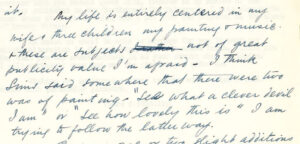 it. My life is entirely centered in my
wife & three children my painting & music
& these are subjects not of great
publicity value I'm afraid. I think
Sims said somewhere that there were two
was of painting - "See what a clever devil
I am" or "See how lovely this is" I am
trying to follow the latter way.
or two slight additions